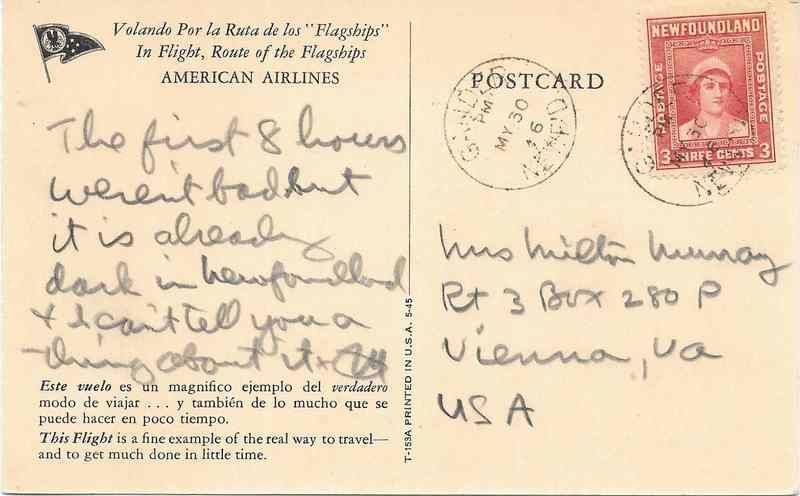 Volando Por la Ruta de los "Flagships"
In Flight, Route of the Flagships
AMERICAN AIRLINES
The first 8 hours
weren't bad but
it is already
dark in Newfoundland
& I can't tell you a
thing about it.
Este vuelo es un magnífico ejemplo del verdadero
modo de viajar . . . y también de lo mucho que se
puede hacer en poco tiempo.
This Flight is a fine example of the real way to travel—
and to get much done in little time.
T-153A PRINTED IN U.S.A. 5-45
POSTCARD
GANDER
PM
MY 30
46
NEWFOUNDLAND
POSTAGE
POSTAGE
3 THREE CENTS 3
MY 30
46
Mrs Milton Murray
Rt 3 Box 280 P
Vienna, Va
USA